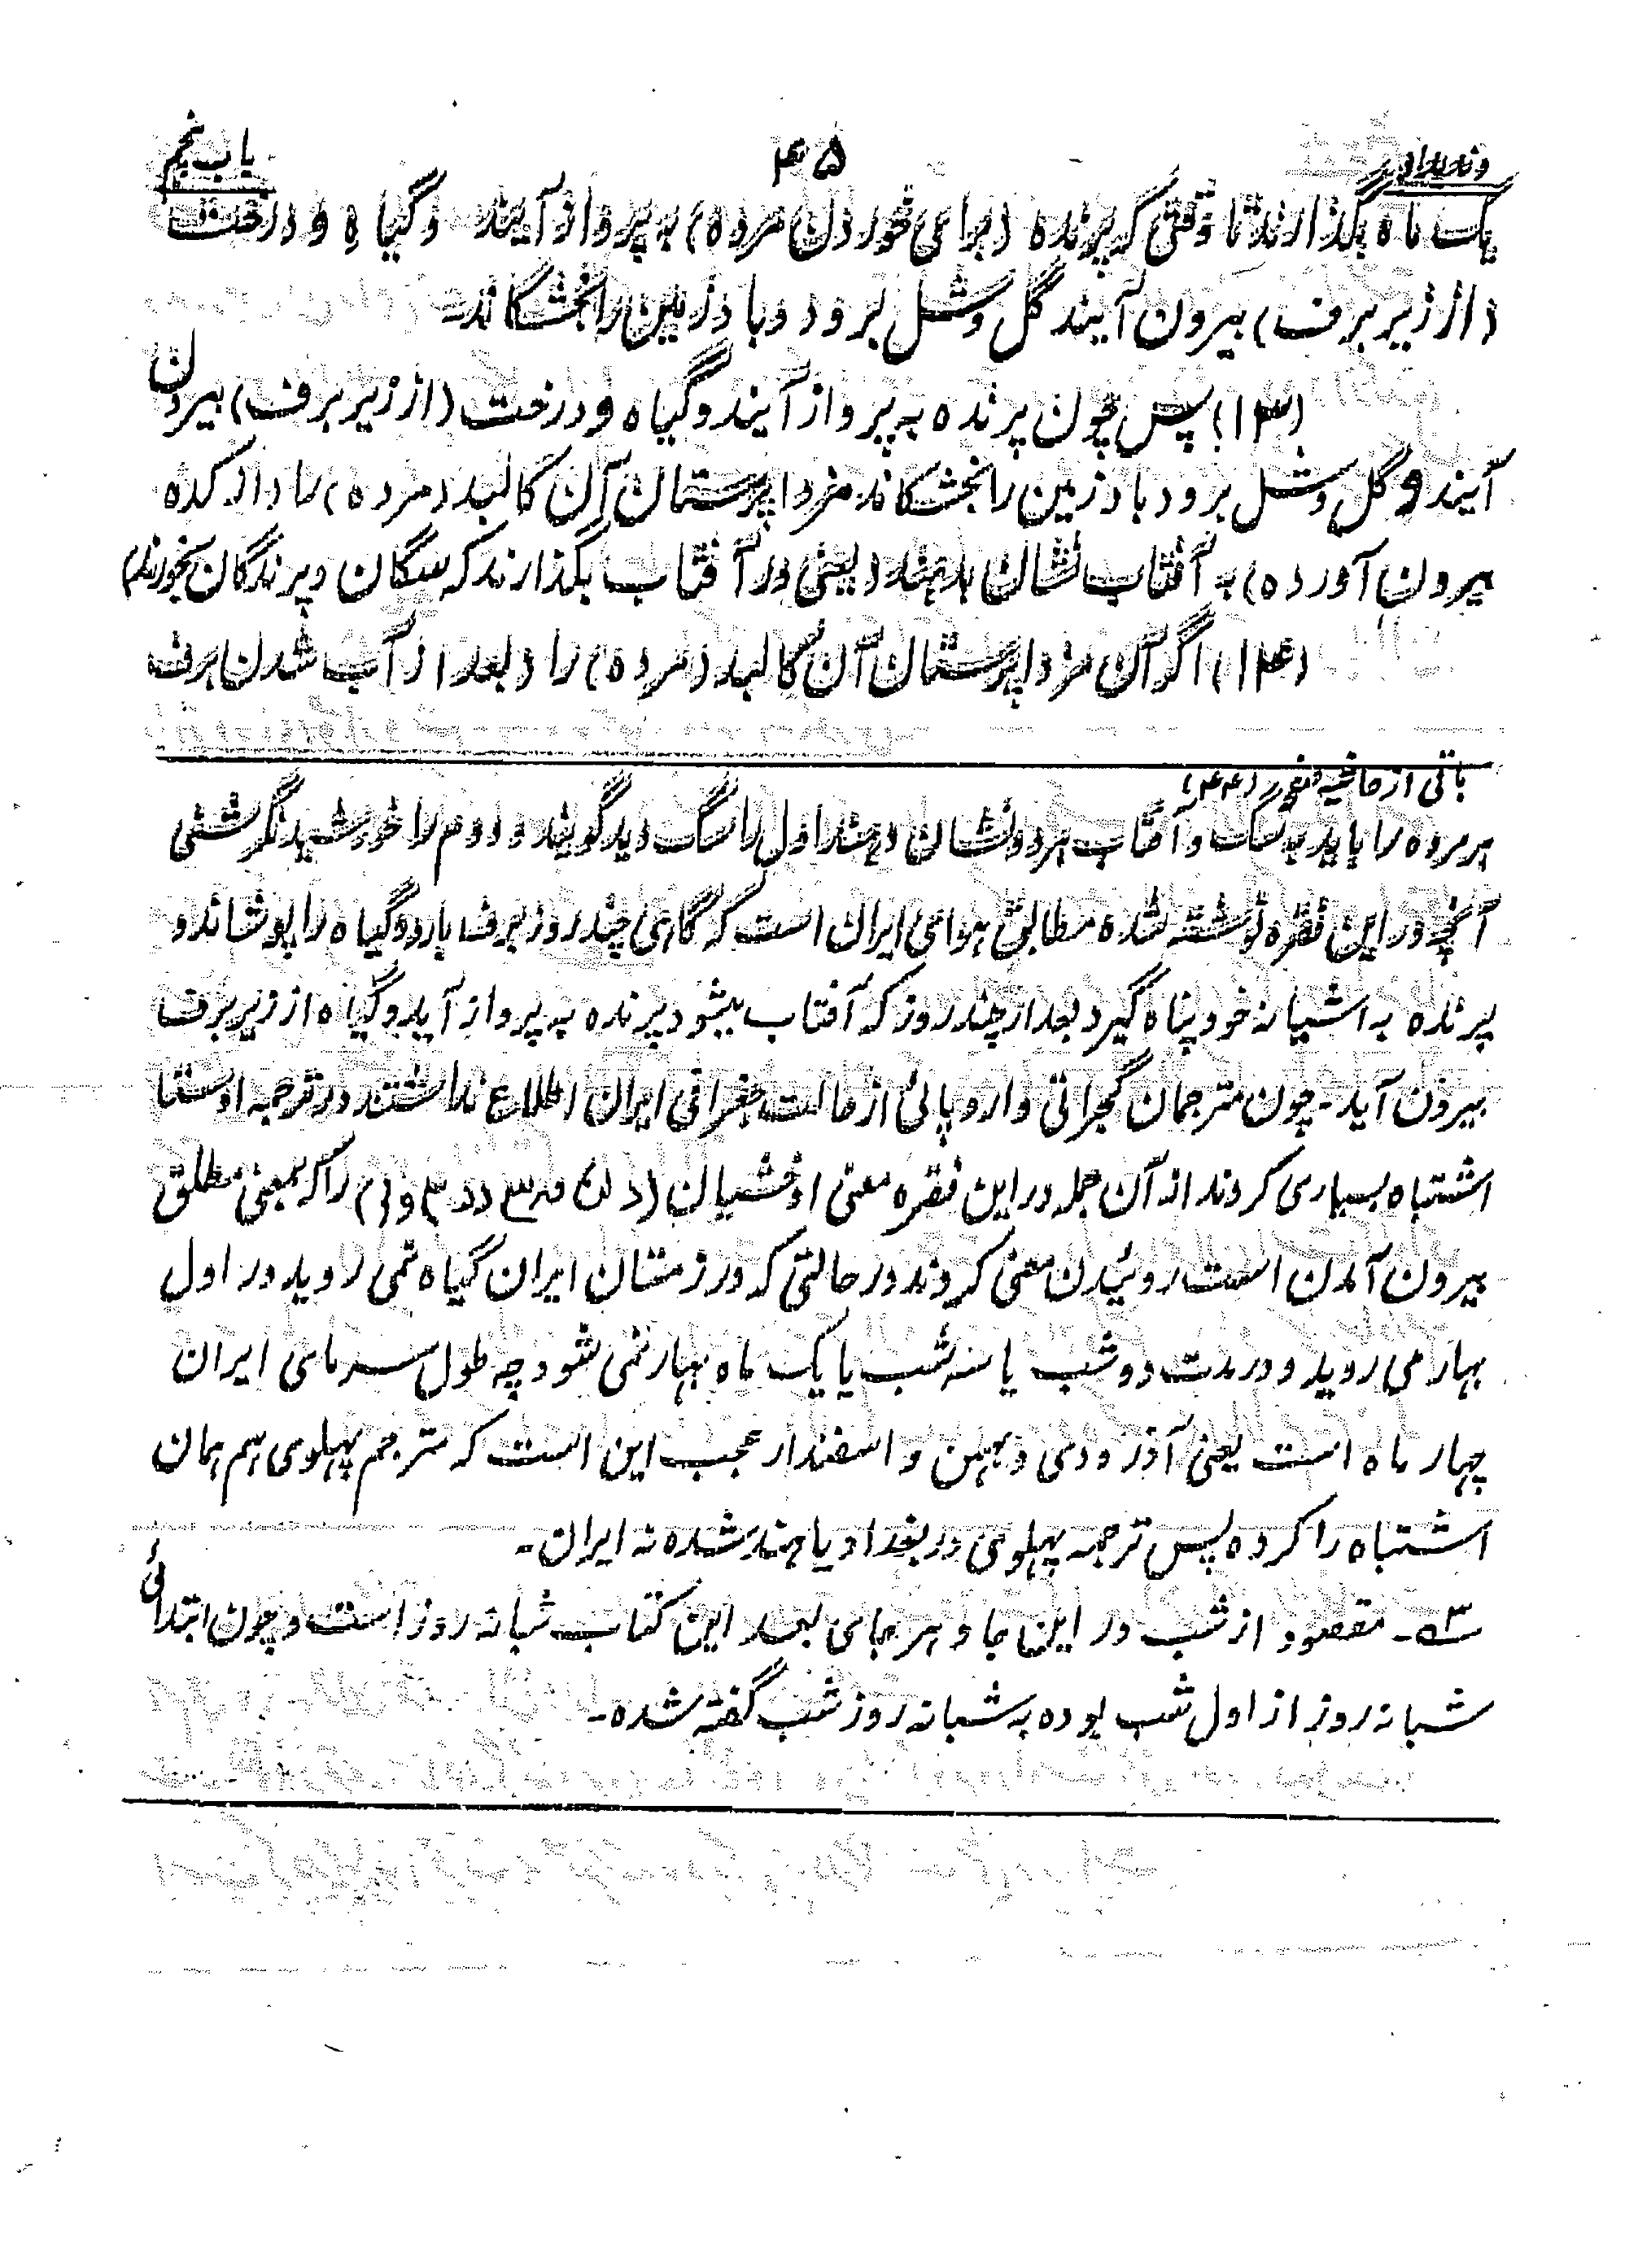 وندیداد
۴۵
باب پنجم
یک ماه بگذارند تا وقتی که پرنده (برای خوردن مرده) به پرواز آیند و گیاه و درخت
(از زیر برف) بیرون آیند گل و شل برود و باد زمین را بخشکاند۔
(۱۳) پس چون پرنده به پرواز آیند و گیاه و درخت (از زیر برف) بیرون
آیند و گل و شل برود باد زمین را بخشکاند مزدا پرستان آن کالبد (مرده) را (از کده
بیرون آورده) به آفتاب نشان بدهند (یعنی در آفتاب بگذارند که سگان و پرندگان بخورند)
(۱۴) اگر آن مزدا پرستان آن کالبد (مرده) را (بعد از آب شدن برف
باقی از حاشیه صفحه (۴۴)
هر مرده را باید به سگ و آفتاب هر دو نشان دهند اول را سگ دید گویند و دوم را خورشید نگرشنی
آنچه در این فقره نوشته شده مطابق هوای ایران است که گاهی چند روز برف بارد و گیاه را پوشاند و
پرنده به اشیانه خود پناه گیرد بعد از چند روز که آفتاب میشود پرنده به پرواز آید و گیاه از زیر برف
بیرون آید۔ چون مترجمان گجراتی و اروپائی از حالت جغرافی ایران اطلاع نداشتند در ترجمه اوستا
اشتباه بسیاری کردند از آن جمله در این فقره معنی اوخشیان را که بمعنی مطلق
بیرون آمدن است روئیدن معنی کردند در حالتی که در زمستان ایران گیاه نمی روید در اول
بهار می روید و در مدت دو شب یا سه شب یا یک ماه بهار نمی شود چه طول سرمای ایران
چهار ماه است یعنی آذر و دی و بهمن و اسفندار عجب این است که مترجم پهلوی هم همان
اشتباه را کرده پس ترجمه پهلوی در بغداد یا هند شده نه ایران۔
۳۔ مقصود از شب در این جا و هر جای بعد این کتاب شبانه روز است و چون ابتدائی
شبانه روز از اول شب بوده به شبانه روز شب گفته شده۔